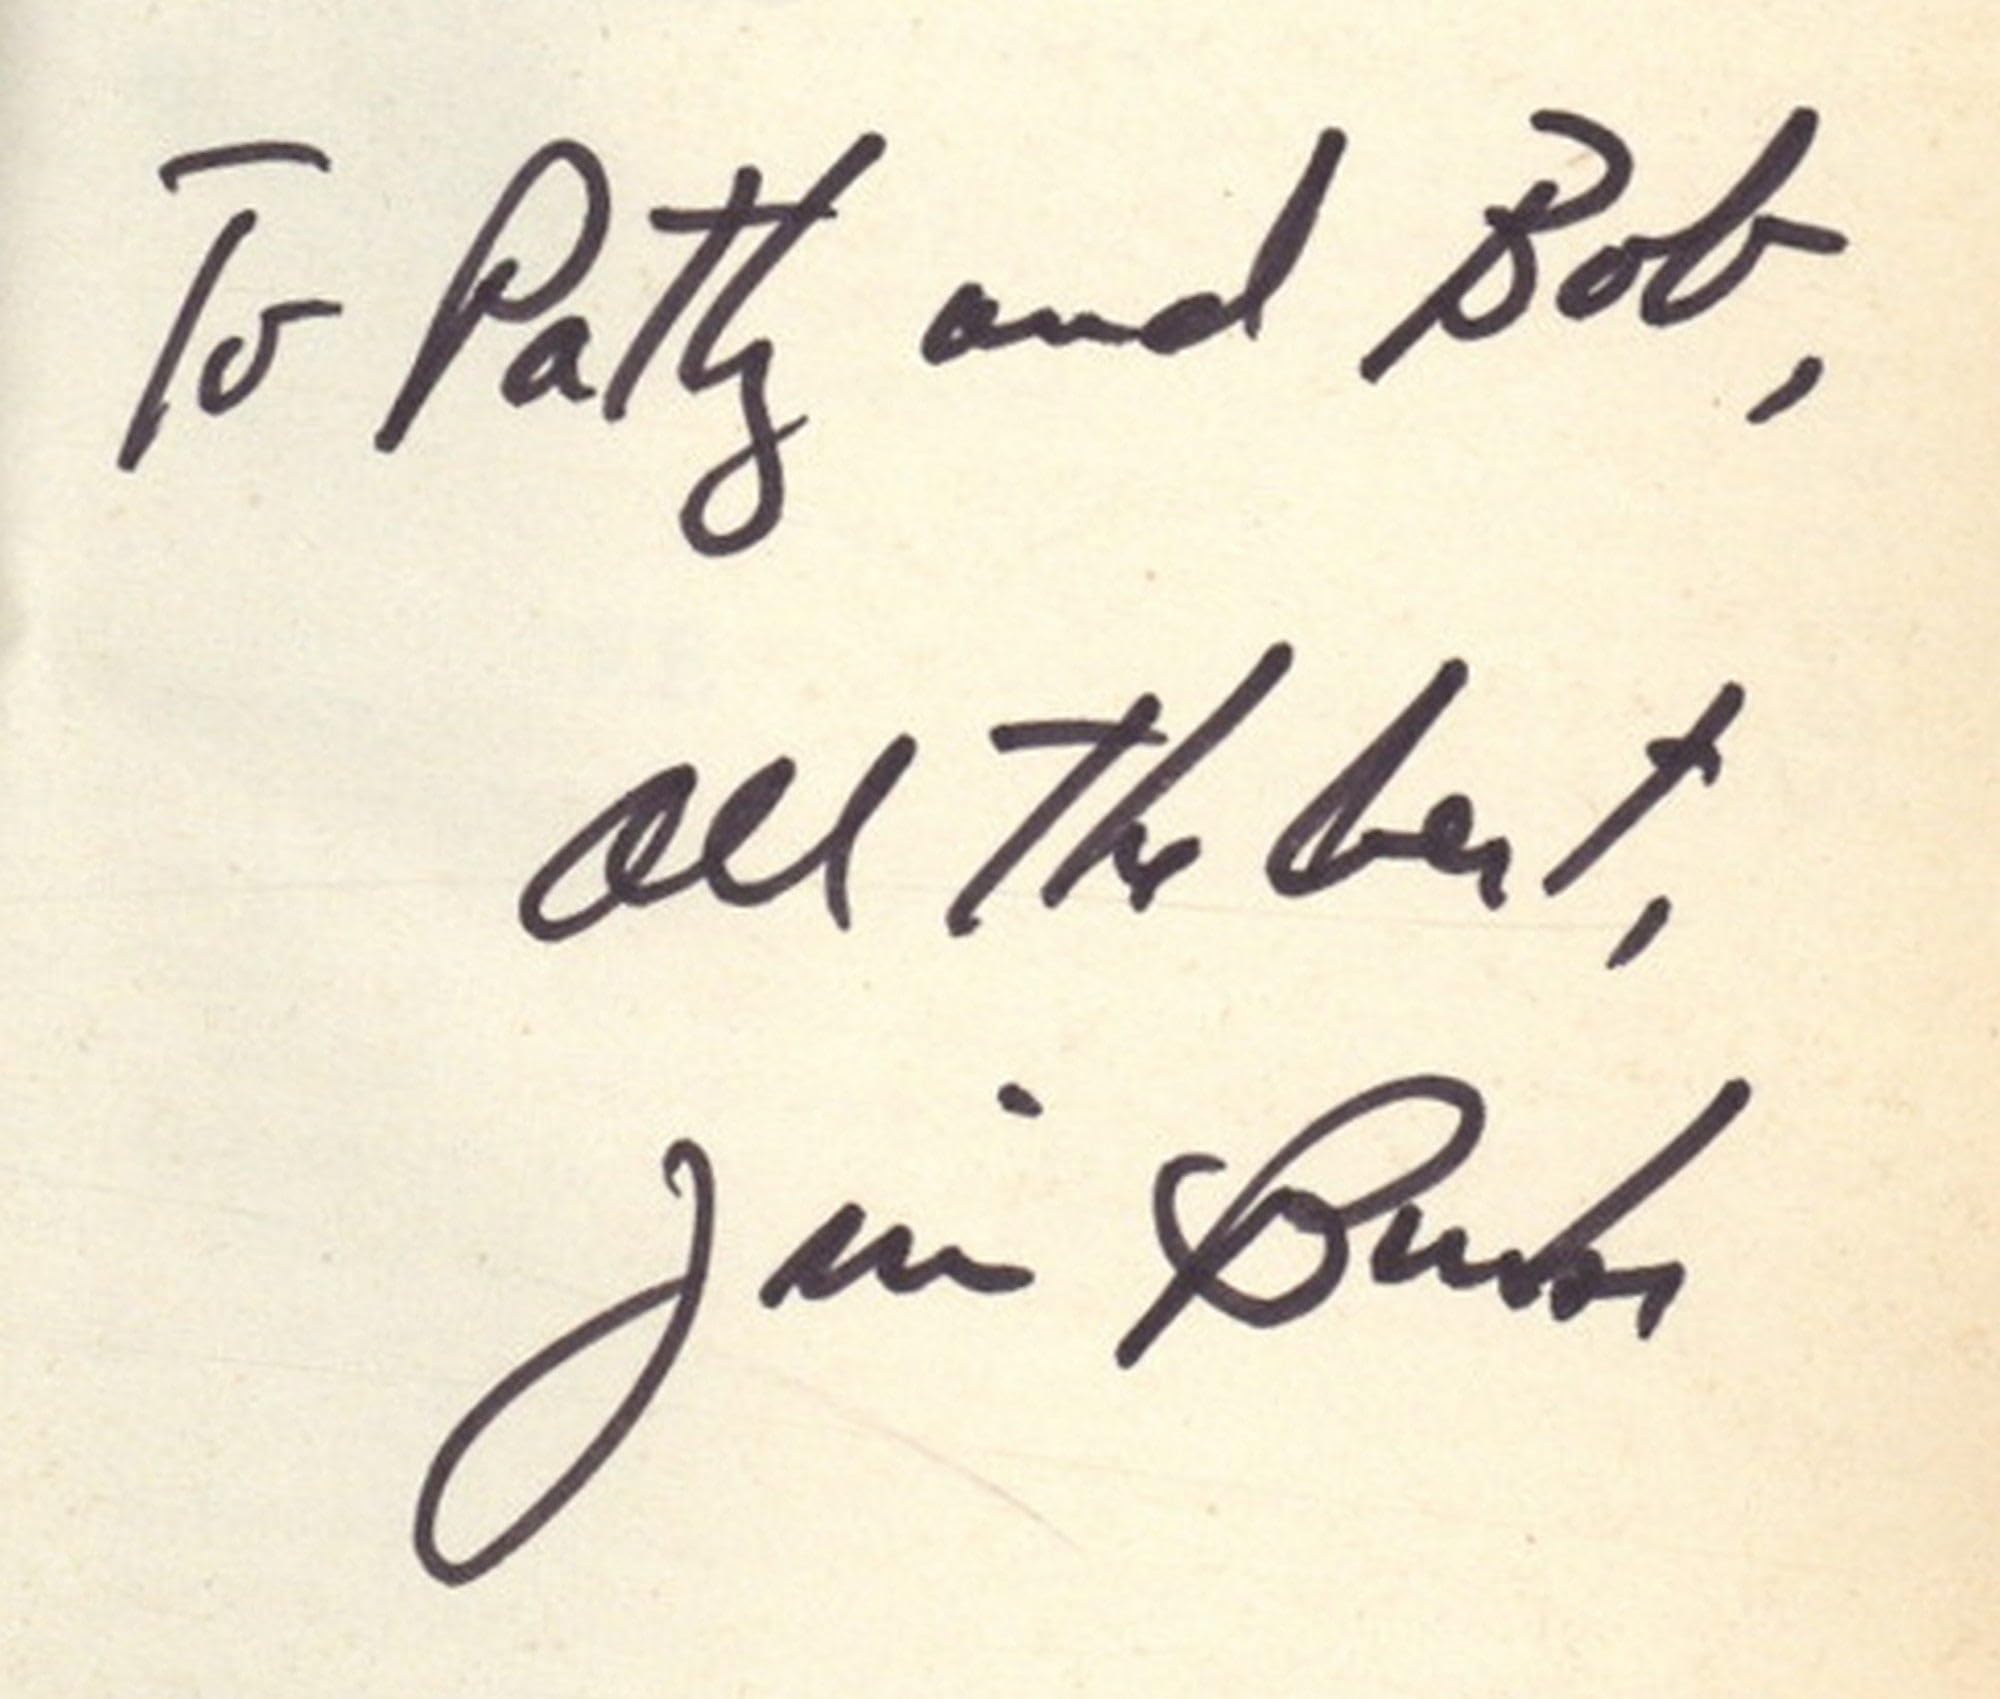 To Patty and Bob,
all the best,
Jim